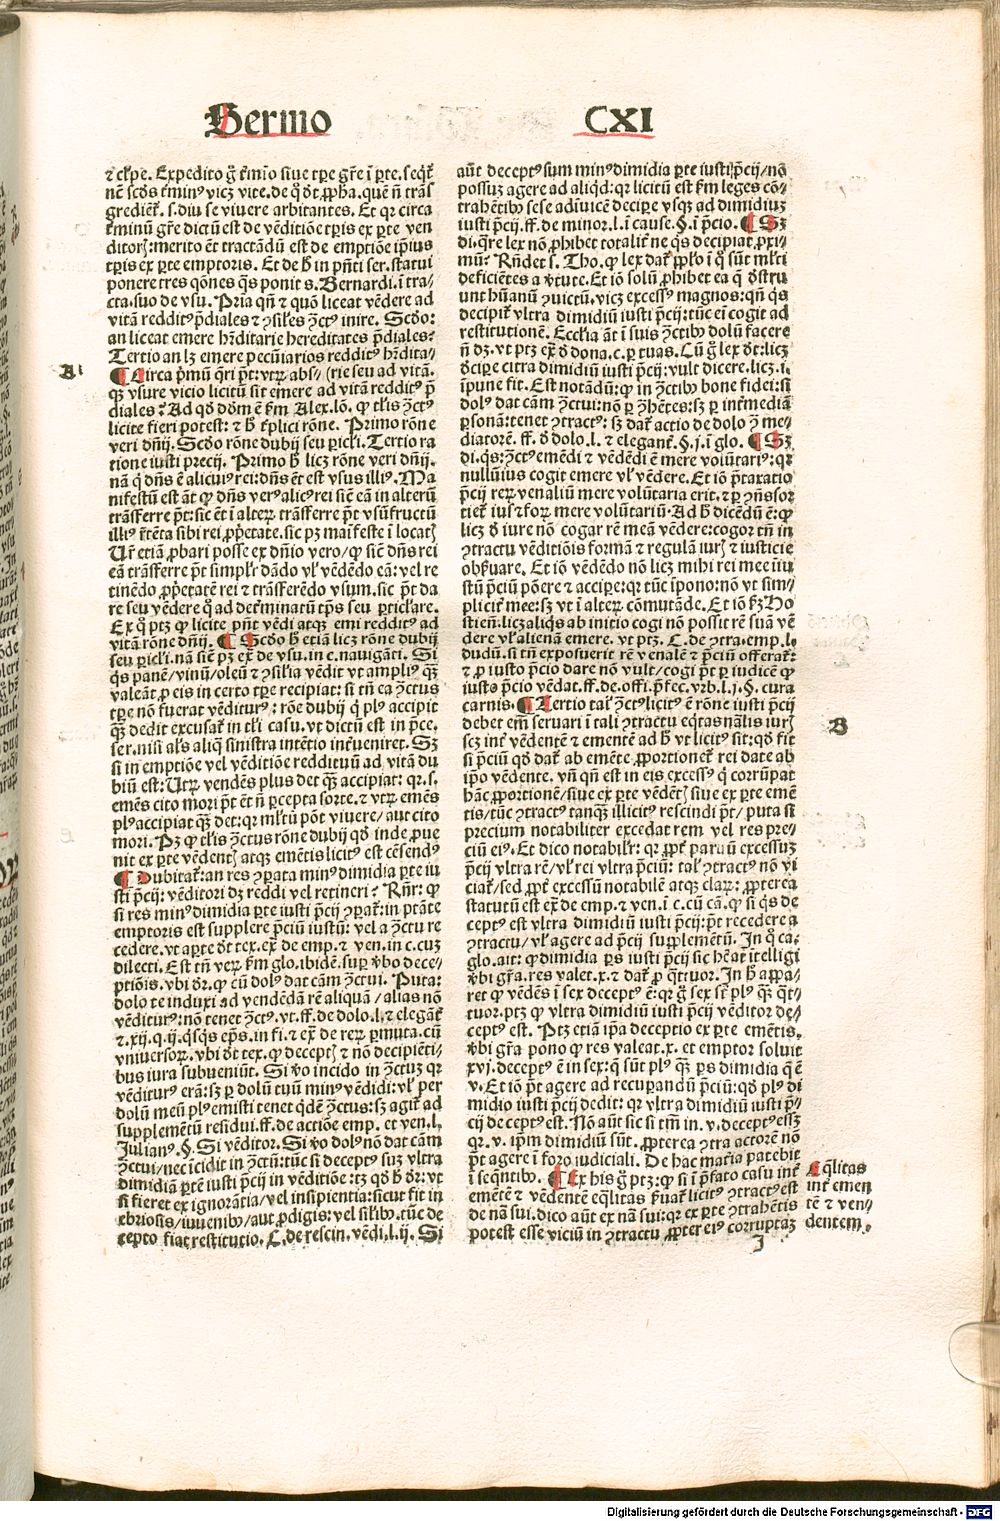 Sermo CXI
⁊ cl'pe. Expedito g̃ t'mĩo siue tp̃e gr̃e ĩ p̃te. seq̃t᷑
nẽ scd̓s t'min⁹ vicz vite. de q̊ d̓t ꝓpha. quẽ nõ trãs
gredieñt᷑. s. diu se viuere arbitantes. Et qr circa
t'minũ gr̃e dictũ est de vẽditiõe tp̃is ex p̃te ven
ditorꝝ: merito eñt tractãdũ est de emptiõe ip̃ius
tp̃is ex p̃te emptoris. Et de h̓ in p̃ñti ser. statui
ponere tres q̃ones q̃s ponit s. Bernardi. ĩ tra-
cta. suo de vsu. Pria qñ ⁊ quõ liceat vẽdere ad
vitã reddit⁹ p̃diales ⁊ ꝯsil'es ꝯ̃ct⁹ inire. Scd̓o:
an liceat emere hr̃ditarie hereditates p̃diales?
Tertio an lz emere pecũiarios reddit⁹ hr̃dita/
A
¶ Circa p̃mũ q̃ri p̃t: vtꝝ abs- (rie seu ad vitã.
qꝫ vsure vicio licitũ sit emere ad vitã reddit⁹ p̃
diales? Ad qd̓ dõm ẽ s'm Alex. lõ. ꝙ tl'is ꝯ̃ct⁹
licite fieri potest: ⁊ h̓ t'plici rõne. Primo rõne
veri dñij. Scd̓o rõne dubij seu pericl'i. Tertio ra
tione iusti precij. Primo h̓ licz rõne veri dñij.
nã q̃ dñs ẽ alicui⁹ rei: dñs eñt est vsus illi⁹. Ma
nifestũ est añt ꝙ dñs ver⁹ alic⁹ rei sic̃ eã in alterũ
trãsferre p̃t: sic eñt ĩ alteꝝ trãsferre p̃t vsũfructũ
illi⁹ r̃tẽta sibi rei ꝓp̃etate. sic pꝫ maĩfeste ĩ locatꝭ
Ur̃ etiã ꝓbari posse ex dñio vero/ ꝙ sic̃ dñs rei
eã trãsferre p̃t simpl'r dãdo vl' vẽdẽdo eã: vel re
tinẽdo ꝓp̃etatẽ rei ⁊ trãsferẽdo vsum. sic p̃t da
re seu vẽdere q̊ ad det'minatũ tp̃s seu p̱ticl'are.
Ex q̊ ptꝫ ꝙ licite p̃ñt vẽdi atqꝫ emi reddit⁹ ad
vitã rõne dñij. ¶ Scd̓o h̓ etiã licz rõne dubij
seu p̱icl'i. nã sic̃ pꝫ ex̃ de vsu. in c. nauigãti. Si
q̃s panẽ/ vinũ/ oleũ ⁊ ꝯsil'ia vẽdit vt ampli⁹ qꝫ
valeãt p̱ eis in certo tp̃e recipiat: si tñ ea ꝯ̃ctus
tp̃e nõ fuerat vẽditur⁹: rõe dubij q̊ pl⁹ accipit
qꝫ dedit excusat᷑ in tl'i casu. vt dictũ est in p̃ce.
ser. nisi al's aliq̃ sinistra intẽtio int'ueniret. Sꝫ
si in emptiõe vel vẽditiõe reddituũ ad vitã du
biũ est: Utꝝ vendẽs plus det qꝫ accipiat: qr. s.
emẽs cito mori p̃t eñt nõ p̱cepta sorte. ⁊ vtꝝ emẽs
pl⁹ accipiat qꝫ det: qr ml'tũ põt viuere/ aut cito
mori. Pꝫ ꝙ tl'is ꝯ̃ctus rõne dubij qd̓ inde ꝓue
nit ex p̃te vẽdentꝭ atqꝫ emẽtis licit⁹ est cẽsend⁹
¶ Dubitat᷑: an res ꝯp̱ata min⁹ dimidia p̃te iu
sti p̃cij: vẽditori dꝫ reddi vel retineri? Rñr: ꝙ
si res min⁹ dimidia p̃te iusti p̃cij ꝯp̱at᷑: in ptãte
emptoris est supplere p̃ciũ iustũ: vel a ꝯ̃ctu re
cedere. vt aperte d̓t tex. ex̃ de emp. ⁊ ven. in c. cuz
dilecti. Est tñ veꝝ s'm glo. ibidẽ. sup̱ v̓bo dece-
ptiõis. vbi dr̃. ꝙ cũ dol⁹ dat cãm ꝯ̃ctui. Puta:
dolo te induxi ad vendẽdã rẽ aliquã/ alias nõ
vẽditur⁹: nõ tenet ꝯ̃ct⁹. vt. ff. de dolo. l. ⁊ elegañt᷑
⁊. xij. q. ij. q̃sq̃s ep̃s. in fi. ⁊ ex̃ de reꝝ p̱muta. cũ
vniuersoꝝ. vbi d̓t tex. ꝙ deceptꝭ ⁊ nõ decipiẽti-
bus iura subueniũt. Si v̓o incido in ꝯ̃ctuꝫ qr
vẽditur⁹ erã: sꝫ p̱ dolũ tuũ min⁹ vẽdidi: vl' per
dolũ meũ pl⁹ emisti tenet q̃dẽ ꝯ̃ctus: sꝫ agit᷑ ad
supplemẽtũ residui. ff. de actiõe emp. et ven. l.
Julian⁹. §. Si vẽditor. Si v̓o dol⁹ nõ dat cãm
ꝯ̃ctui/ nec ĩcidit in ꝯ̃ctũ: tũc si decept⁹ suꝫ vltra
dimidiã p̃tẽ iusti p̃cij in vẽditiõe: tꝫ qd̓ h̓ dr̃: vt
si fieret ex ignorãtia/ vel insipientia: sicut fit in
ebriosis/ iuuenibꝰ/ aut ꝓdigis: vel sil'ibꝰ. tũc de
cepto fiat restitutio. C. de rescin. vẽdi. l. ij. Si
aũt decept⁹ sum min⁹ dimidia p̃te iusti p̃cij/ nõ
possuꝫ agere ad aliqd̓: qr licitũ est s'm leges cõ-
trahẽtibꝰ sese adĩuicẽ decip̱e vsqꝫ ad dimidiuꝫ
iusti p̃cij. ff. de minor. l. i cause. §. ĩ p̃cio. ¶ Sꝫ
di. q̃re lex nõ ꝓhibet totalit᷑ ne q̃s decipiat ꝓxi-
mũ? Rñdet s. Tho. ꝙ lex dat᷑ pp̃l'o ĩ q̊ sũt ml'ti
deficiẽtes a v̓tute. Et iõ solũ ꝓhibet ea q̃ d̓stru
unt hũanũ ꝯuictũ. vicꝫ excess⁹ magnos: qñ q̃s
decipit᷑ vltra dimidiũ iusti p̃cij: tũc ei cogit ad
restitutionẽ. Eccl'ia añt ĩ suis ꝯ̃ctibꝰ dolũ facere
nõ dꝫ. vt ptꝫ ex̃ d̓ dona. c. p̱ tuas. Cũ g̃ lex d̓t: licꝫ
d̓cip̱e citra dimidiũ iusti p̃cij: vult dicere. licꝫ. i.
ĩpune fit. Est notãdũ: ꝙ in ꝯ̃ctibꝰ bone fidei: si
dol⁹ dat cãm ꝯ̃ctui: nõ p̱ ꝯ̃hẽtes: sꝫ p̱ int'mediã
p̱sonã: tenet ꝯtract⁹: sꝫ dat᷑ actio de dolo ꝯ̃ me-
diatorẽ. ff. d̓ dolo. l. ⁊ elegant᷑. §. j. ĩ glo. ¶ Sꝫ
di. q̃s: ꝯ̃ct⁹ emẽdi ⁊ vẽdẽdi ẽ mere volũtari⁹: qr
nullũius cogit emere vl' vẽdere. Et iõ p̃taxatio
p̃cij reꝝ venaliũ mere volũtaria erit. ⁊ p̱ ꝯñs sor
tiet᷑ ius ⁊ foꝝ mere volũtariũ. Ad h̓ dicẽdũ ẽ: ꝙ
licꝫ d̓ iure nõ cogar rẽ meã vẽdere: cogor tñ in
ꝯtractu vẽditiõis formã ⁊ regulã iurꝭ ⁊ iusticie
obẜuare. Et iõ vẽdẽdo nõ licꝫ mihi rei mee ĩiu
stũ p̃ciũ põere ⁊ accip̱e: qr tũc ĩpono: nõ vt sim-
plicit᷑ mee: sꝫ vt ĩ alteꝝ cõmutãde. Et iõ s'm Ho
stieñ. licꝫ aliq̃s ab initio cogi nõ possit rẽ suã vẽ
dere vl' alienã emere. vt ptꝫ. C. de ꝯtra. emp. l.
dudũ. si tñ exposuerit rẽ venalẽ ⁊ p̃ciũ offerat᷑:
⁊ p̱ iusto p̃cio dare nõ vult/ cogi p̃t p̱ iudicẽ ꝙ
iusto p̃cio vẽdat. ff. de. offi. p̃fec. vrb. l. j. §. cura
carnis. ¶ Tertio tal' ꝯ̃ct⁹ licit⁹ ẽ rõne iusti p̃cij
B
debet em̃ seruari ĩ tali ꝯtractu eq̃tas nãlis iurꝭ
scꝫ int᷑ vẽdentẽ ⁊ ementẽ ad h̓ vt licit⁹ sit: qd̓ fit
si p̃ciũ qd̓ dat᷑ ab emẽte ꝓportionet᷑ rei date ab
ip̃o vẽdente. vñ qñ est in eis excess⁹ q̊ corrũpat
hãc ꝓportionẽ/ siue ex p̃te vẽdẽtꝭ siue ex p̃te emẽ
tis/ tũc ꝯtract⁹ tanqꝫ illicit⁹ rescindi p̃t/ puta si
precium notabiliter excedat rem vel res pre-
ciũ ei⁹. Et dico notabil'r: qr ꝓpt᷑ paruũ excessuꝫ
p̃cij vltra rẽ/ vl' rei vltra p̃ciũ: tal' ꝯtract⁹ nõ vi
ciat᷑/ sed ꝓpt᷑ excessũ notabilẽ atqꝫ claꝝ: ꝓpterea
statutũ est ex̃ de emp. ⁊ ven. ĩ c. cũ cã. ꝙ si q̃s de
cept⁹ est vltra dimidiũ iusti p̃cij: p̃t recedere a
ꝯtractu/ vl' agere ad p̃cij supplemẽtũ. In q̊ ca.
glo. ait: ꝙ dimidia p̱s iusti p̃cij sic hẽat ĩtelligi
v̓bi gr̃a. res valet. x. ⁊ dat᷑ p̱ q̃ttuor. In h̓ appa-
ret ꝙ vẽdẽs ĩ sex decept⁹ ẽ: qr g̃ sex st̃ pl⁹ qꝫ q̃t-
tuor. ptꝫ ꝙ vltra dimidiũ iusti p̃cij vẽditor de-
cept⁹ est. Ptꝫ etiã ip̃a deceptio ex p̃te emẽtis.
v̓bi gr̃a pono ꝙ res valeat. x. et emptor soluit
xvj. decept⁹ ẽ in sex: q̃ sũt pl⁹ qꝫ p̱s dimidia q̃ ẽ
v. Et iõ p̃t agere ad recup̱andũ p̃ciũ: qd̓ pl⁹ di
midio iusti p̃cij dedit: qr vltra dimidiũ iusti p̃-
cij decept⁹ est. Nõ aũt sic si tm̃ in. v. decept⁹ esset
qr. v. ip̃m dimidiũ sũt. ꝓpterea ꝯtra actorẽ nõ
p̃t agere ĩ foro iudiciali. De hac mat'ia patebit
ĩ seq̃ntibꝰ. ¶ Ex his g̃ ptꝫ: ꝙ si ĩ p̃fato casu int᷑
ementẽ ⁊ vẽdentẽ eq̃litas ẜuat᷑ licit⁹ ꝯtract⁹ est
de nã sui. dico aũt ex nã sui: qr ex p̃te ꝯtrahẽtis
potest esse viciũ in ꝯtractu ꝓpter ei⁹ corruptaꝫ
Eq̃litas
int᷑ emen
tẽ ⁊ ven-
dentem.
J
Digitalisierung gefördert durch die Deutsche Forschungsgemeinschaft - DFG